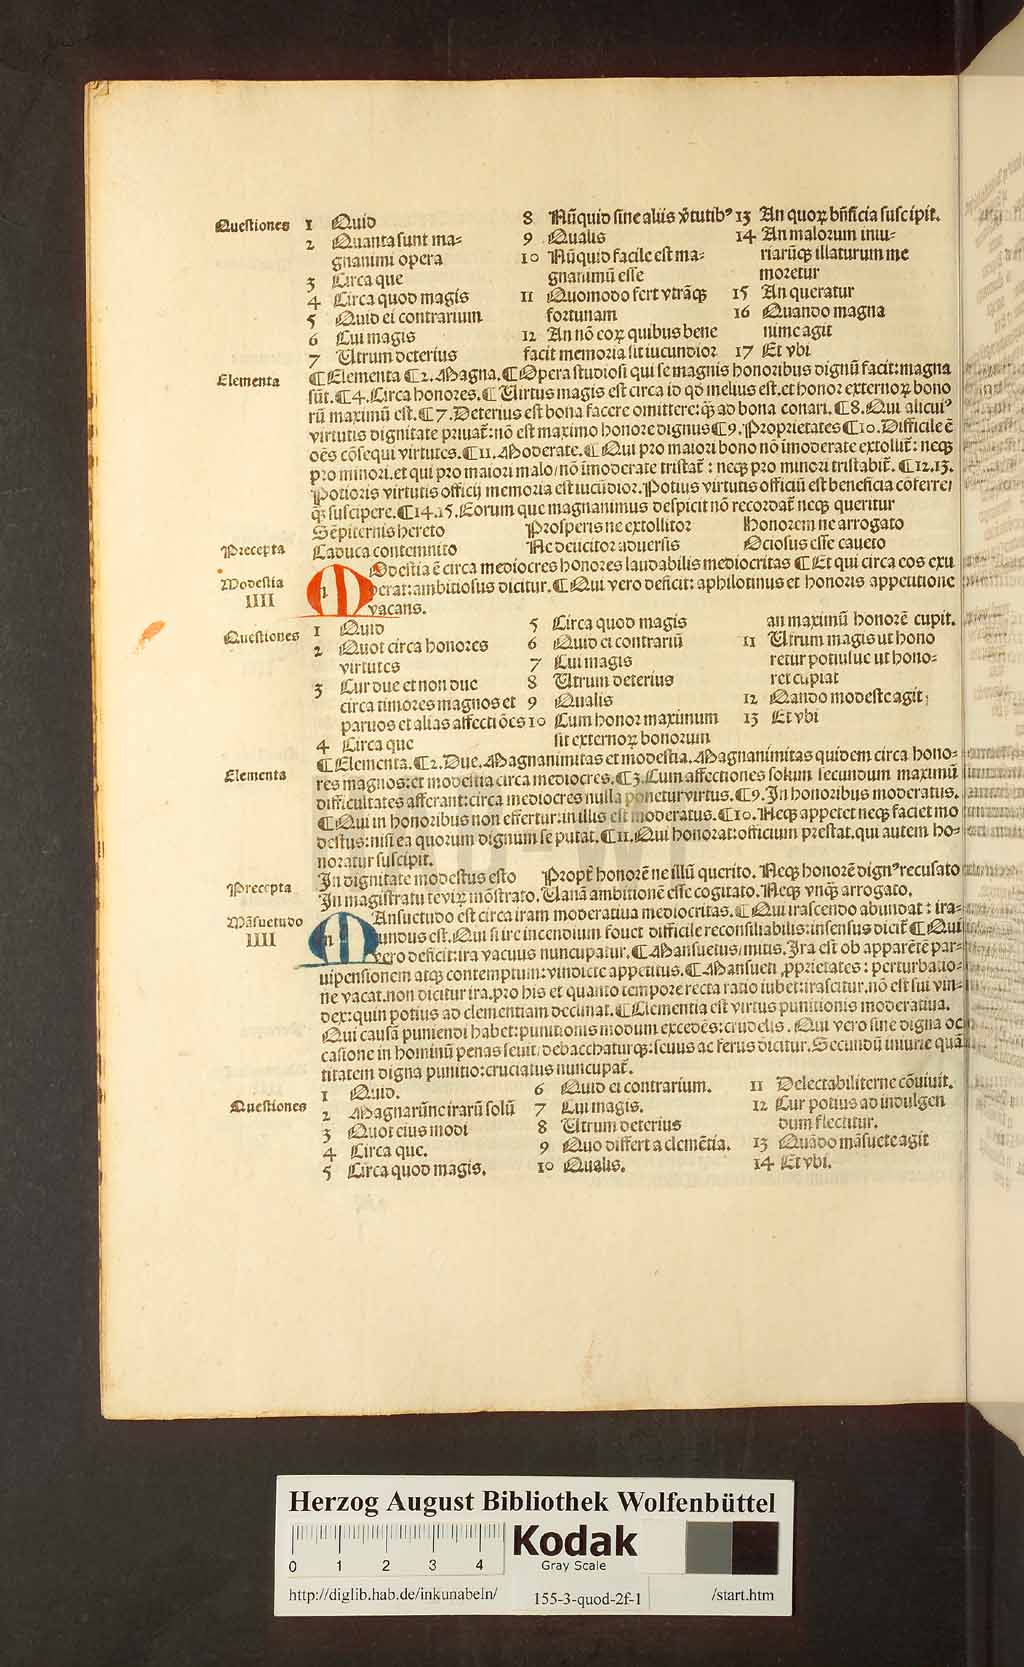 Questiones
1 Quid
2 Quanta sunt ma-
gnanimi opera
3 Circa que
4 Circa quod magis
5 Quid ei contrarium
6 Cui magis
7 Utrum deterius
8 Nūquid sine aliis v̄tutibꝰ
9 Qualis
10 Nūquid facile est ma-
gnanimū esse
11 Quomodo fert vtrāqꝫ
fortunam
12 An nō eoꝝ quibus bene
facit memoria sit iucundior
13 An quoꝝ bn̄ficia suscipit.
14 An malorum iniu-
riarūqꝫ illaturum me
moretur
15 An queratur
16 Quando magna
nime agit
17 Et vbi
Elementa
¶Elementa ¶2. Magna. ¶Opera studiosi qui se magnis honoribus dignū facit: magna
sūt. ¶4. Circa honores. ¶Virtus magis est circa id qd̄ melius est. et honor externoꝝ bono
rū maximū est. ¶7. Deterius est bona facere omittere: qꝫ ad bona conari. ¶8. Qui alicuiꝰ
virtutis dignitate priuat̄: nō est maximo honore dignus ¶9. Proprietates ¶10. Difficile ē
oēs cōsequi virtutes. ¶11. Moderate. ¶Qui pro maiori bono nō īmoderate extollit̄: neqꝫ
pro minori. et qui pro maiori malo/nō īmoderate tristat̄: neqꝫ pro minori tristabit̄. ¶12.13.
Potioris virtutis officij memoria est iucūdior. Potius virtutis officiū est beneficia cōferre/
qꝫ suscipere. ¶14.15. Eorum que magnanimus despicit nō recordat̄ neqꝫ queritur
Precepta
Sēpiternis hereto Prosperis ne extollitor Honorem ne arrogato
Caduca contemnito Ne deiicitor aduersis Ociosus esse caueto
Modestia
IIII
Modestia ē circa mediocres honores laudabilis mediocritas ¶Et qui circa eos exu
perat: ambitiosus dicitur. ¶Qui vero deficit: aphilotimus et honoris appetitione
vacans.
Questiones
1 Quid
2 Quot circa honores
virtutes
3 Cur due et non due
circa timores magnos et
paruos et alias affectiōes
4 Circa que
5 Circa quod magis
6 Quid ei contrariū
7 Cui magis
8 Utrum deterius
9 Qualis
10 Cum honor maximum
sit externoꝝ bonorum
an maximū honorē cupit.
11 Utrum magis ut hono
retur potiusue ut hono-
ret cupiat
12 Qando modeste agit;
13 Et vbi
Elementa
¶Elementa. ¶2. Due. Magnanimitas et modestia. Magnanimitas quidem circa hono-
res magnos: et modestia circa mediocres. ¶3. Cum affectiones solum secundum maximū
difficultates afferant: circa mediocres nulla ponetur virtus. ¶9. In honoribus moderatus.
¶Qui in honoribus non effertur: in illis est moderatus. ¶10. Neqꝫ appetet neqꝫ faciet mo
destus: nisi ea quorum dignum se putat. ¶11. Qui honorat: officium prestat. qui autem ho-
noratur suscipit.
Precepta
In dignitate modestus esto Propt̄ honorē ne illū querito. Neqꝫ honorē dignꝰ recusato
In magistratu te viꝝ mōstrato. Vanā ambitionē esse cogitato. Neqꝫ vnqꝫ arrogato.
Māsuetudo
IIII
Mansuetudo est circa iram moderatiua mediocritas. ¶Qui irascendo abundat: ira-
cundus est. Qui si ire incendium fouet difficile reconsiliabilis: infensus dicit̄ ¶Qui
vero deficit: ira vacuus nuncupatur. ¶Mansuetus/mitis. Ira est ob apparētē par-
uipensionem atqꝫ contemptum: vindicte appetitus. ¶Mansueti ꝓprietates: perturbatio-
ne vacat. non dicitur ira. pro his et quanto tempore recta ratio iubet: irascitur. nō est sui vin-
dex: quin potius ad clementiam declinat. ¶Clementia est virtus punitionis moderatiua.
Qui causā puniendi habet: punitionis modum excedēs: crudelis. Qui vero sine digna oc
casione in hominū penas seuit/debacchaturqꝫ: seuus ac ferus dicitur. Secundū iniurie quā
titatem digna punitio: cruciatus nuncupat̄.
Questiones
1 Quid.
2 Magnarūne irarū solū
3 Quot eius modi
4 Circa que.
5 Circa quod magis.
6 Quid ei contrarium.
7 Cui magis.
8 Utrum deterius
9 Quo differt a clemētia.
10 Qualis.
11 Delectabiliterne cōuiuit.
12 Cur potius ad indulgen
dum flectitur.
13 Quādo māsuete agit
14 Et vbi.
Herzog August Bibliothek Wolfenbüttel
0 1 2 3 4
Kodak
Gray Scale
http://diglib.hab.de/inkunabeln/ 155-3-quod-2f-1 /start.htm